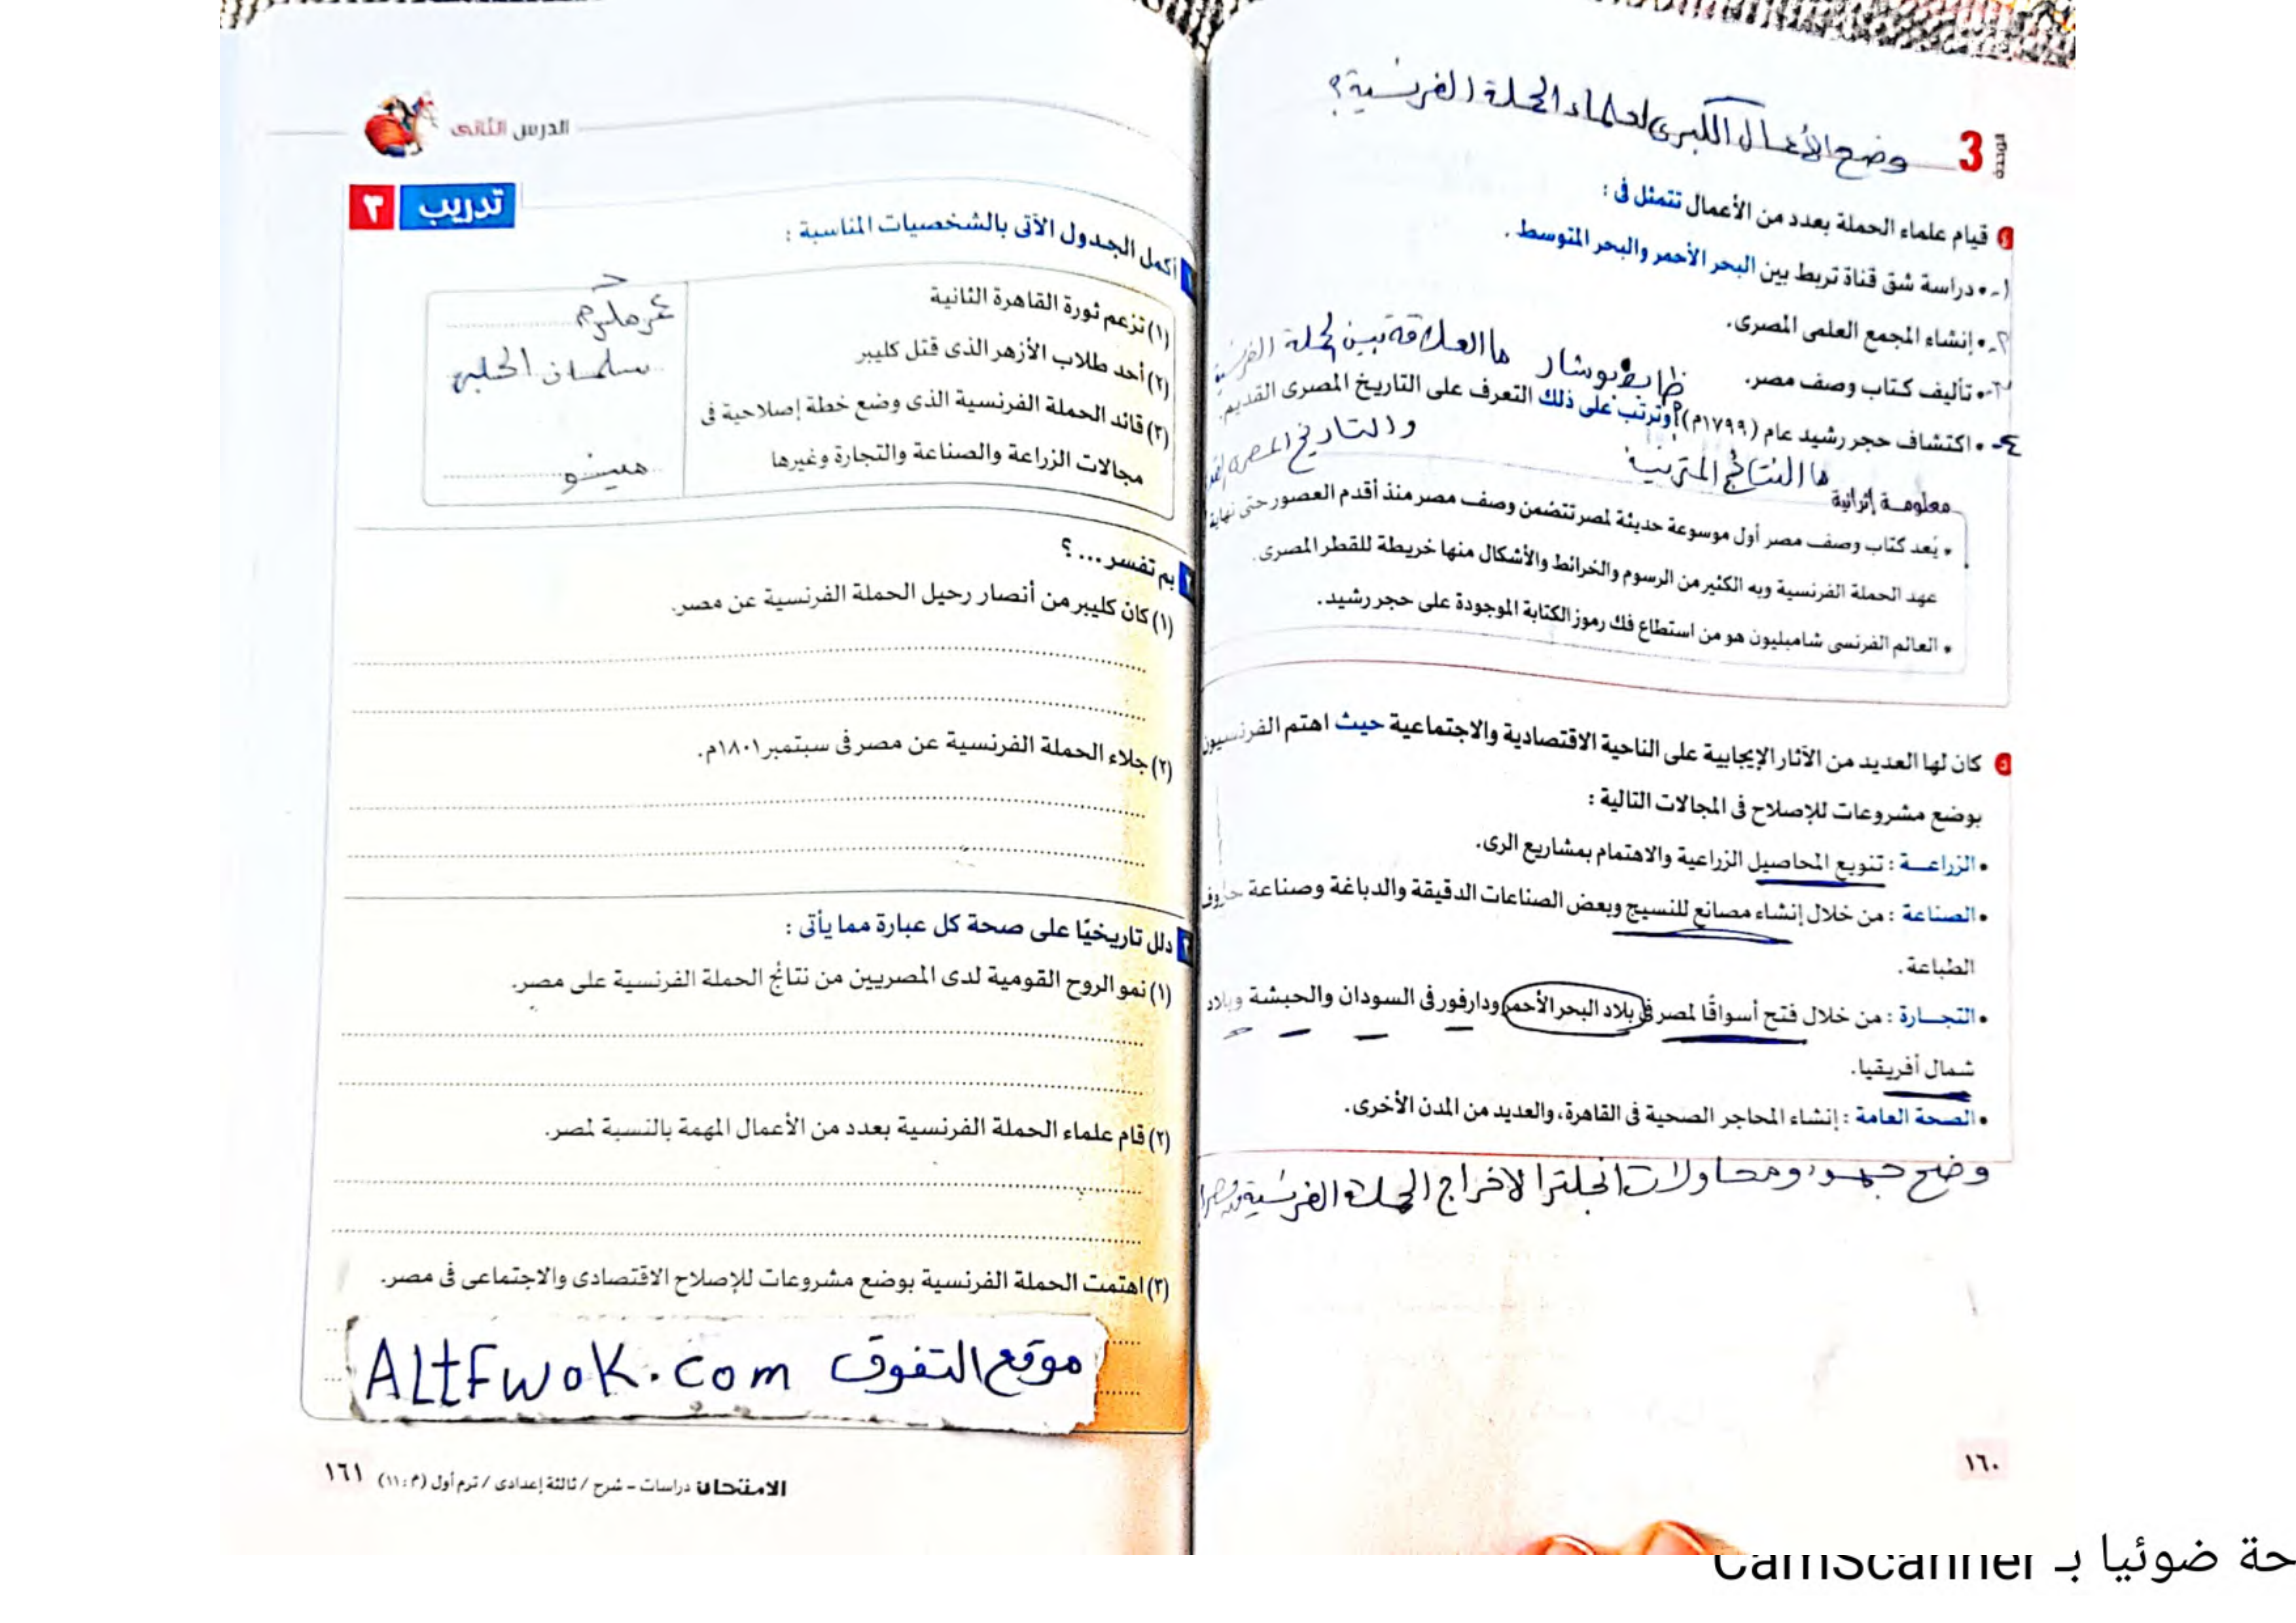 الوحدة 3 وضح الأعمال الكبرى لعلماء الحملة الفرنسية؟
٤ قيام علماء الحملة بعدد من الأعمال تتمثل فى :
١- • دراسة شق قناة تربط بين البحر الأحمر والبحر المتوسط .
٢- • إنشاء المجمع العلمى المصرى.
٣- • تأليف كتاب وصف مصر.
ضابط بوشار ما العلاقة بين الحملة الفرنسية
٤- • اكتشاف حجر رشيد عام (١٧٩٩م) وترتب على ذلك التعرف على التاريخ المصرى القديم.
والتاريخ المصرى
ما النتائج المترتبة
معلومة إثرائية
• يُعد كتاب وصف مصر أول موسوعة حديثة لمصر تتضمن وصف مصر منذ أقدم العصور حتى نهاية
عهد الحملة الفرنسية وبه الكثير من الرسوم والخرائط والأشكال منها خريطة للقطر المصرى.
• العالم الفرنسى شامبليون هو من استطاع فك رموز الكتابة الموجودة على حجر رشيد.
٥ كان لها العديد من الآثار الإيجابية على الناحية الاقتصادية والاجتماعية حيث اهتم الفرنسيون
بوضع مشروعات للإصلاح فى المجالات التالية :
• الزراعــة : تنويع المحاصيل الزراعية والاهتمام بمشاريع الرى.
• الصناعة : من خلال إنشاء مصانع للنسيج وبعض الصناعات الدقيقة والدباغة وصناعة حروف
الطباعة.
• التجــارة : من خلال فتح أسواقًا لمصر فى بلاد البحر الأحمر ودارفور فى السودان والحبشة وبلاد
شمال أفريقيا.
• الصحة العامة : إنشاء المحاجر الصحية فى القاهرة، والعديد من المدن الأخرى.
وضح جهود ومحاولات انجلترا لاخراج الحملة الفرنسية
١٦٠
الدرس الثانى
تدريب ٣
١ أكمل الجدول الآتى بالشخصيات المناسبة :
(١) تزعم ثورة القاهرة الثانية عمر مكرم
(٢) أحد طلاب الأزهر الذى قتل كليبر سليمان الحلبى
(٣) قائد الحملة الفرنسية الذى وضع خطة إصلاحية فى
مجالات الزراعة والصناعة والتجارة وغيرها مينو
٢ بم تفسر ... ؟
(١) كان كليبر من أنصار رحيل الحملة الفرنسية عن مصر.
(٢) جلاء الحملة الفرنسية عن مصر فى سبتمبر ١٨٠١م.
٣ دلل تاريخيًا على صحة كل عبارة مما يأتى :
(١) نمو الروح القومية لدى المصريين من نتائج الحملة الفرنسية على مصر.
(٢) قام علماء الحملة الفرنسية بعدد من الأعمال المهمة بالنسبة لمصر.
(٣) اهتمت الحملة الفرنسية بوضع مشروعات للإصلاح الاقتصادى والاجتماعى فى مصر.
موقع التفوق ALtFwoK.com
الامتحان دراسات - شرح / ثالثة إعدادى / ترم أول (م : ١١) ١٦١
حة ضوئيا بـ CamScanner